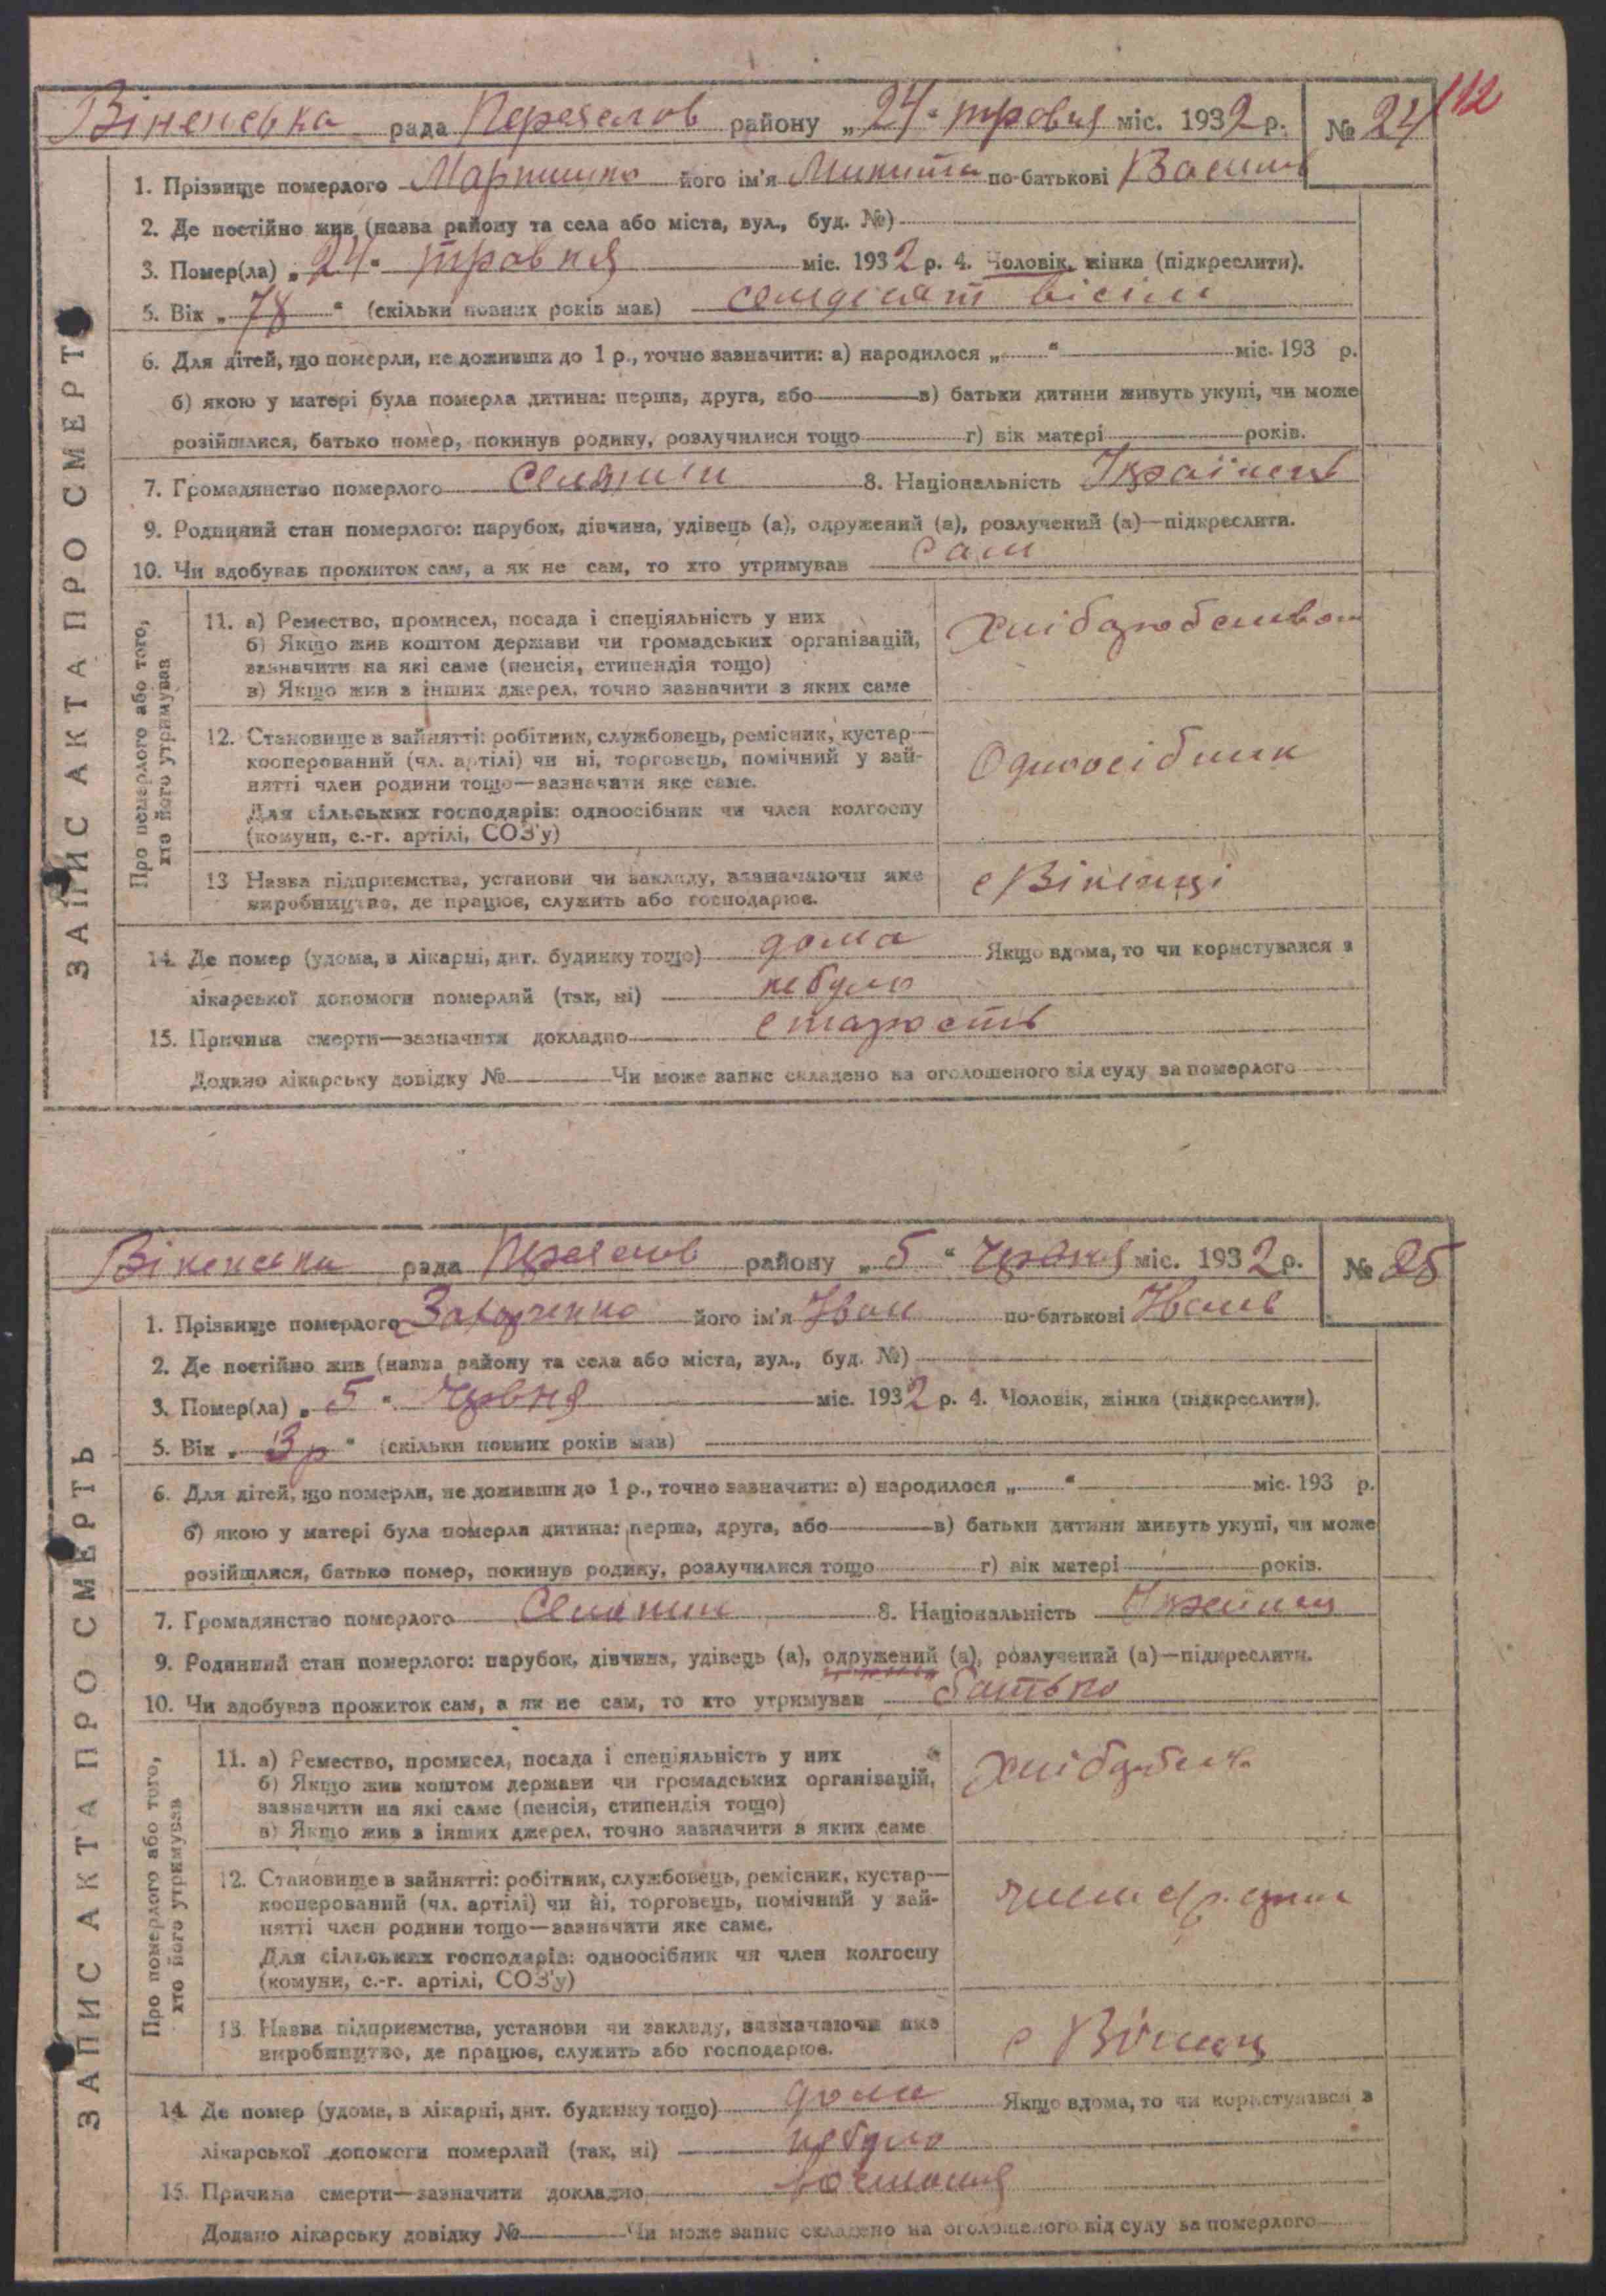 112
Віненська рада Переяслов району „24“ травня міс. 1932 р. № 24
1. Прізвище померлого його ім'я Микита по-батькові Васильв
2. Де постійно жив (назва району та села або міста, вул., буд. №)
3. Помер(ла) „24“ травня міс. 1932 р. 4. Чоловік, жінка (підкреслити).
5. Вік „78“ (скільки повних років мав) семдесят вісім
6. Для дітей, що померли, не доживши до 1 р., точно зазначити: а) народилося „ “ міс. 193 р.
б) якою у матері була померла дитина: перша, друга, або в) батьки дитини живуть укупі, чи може
розійшлися, батько помер, покинув родину, розлучилися тощо г) вік матері років.
7. Громадянство померлого селянин 8. Національність Українець
9. Родинний стан померлого: парубок, дівчина, удівець (а), одружений (а), розлучений (а)—підкреслити.
10. Чи здобував прожиток сам, а як не сам, то хто утримував сам
ЗАПИС АКТА ПРО СМЕРТЬ
Про померлого або того, хто його утримував
11. а) Ремество, промисел, посада і спеціяльність у них
б) Якщо жив коштом держави чи громадських організацій,
зазначити на які саме (пенсія, стипендія тощо)
в) Якщо жив з інших джерел, точно зазначити з яких саме
12. Становище в зайнятті: робітник, службовець, ремісник, кустар—
кооперований (чл. артілі) чи ні, торговець, помічний у зай-
нятті член родини тощо—зазначити яке саме.
Для сільських господарів: одноосібник чи член колгоспу
(комуни, с.-г. артілі, СОЗ'у)
Одноосібник
13 Назва підприємства, установи чи закладу, зазначаючи яке
виробництво, де працює, служить або господарює.
с Віненці
14. Де помер (удома, в лікарні, дит. будинку тощо) дома Якщо вдома, то чи користувався з
лікарської допомоги померлий (так, ні) небуло
15. Причина смерти—зазначити докладно старость
Додано лікарську довідку № Чи може запис складено на оголошеного від суду за померлого
Віненська рада Переяслов району „5“ червня міс. 1932 р. № 25
1. Прізвище померлого Захарченко його ім'я Іван по-батькові Іванв
2. Де постійно жив (назва району та села або міста, вул., буд. №)
3. Помер(ла) „5“ червня міс. 1932 р. 4. Чоловік, жінка (підкреслити).
5. Вік „3 р“ (скільки повних років мав)
6. Для дітей, що померли, не доживши до 1 р., точно зазначити: а) народилося „ “ міс. 193 р.
б) якою у матері була померла дитина: перша, друга, або в) батьки дитини живуть укупі, чи може
розійшлися, батько помер, покинув родину, розлучилися тощо г) вік матері років.
7. Громадянство померлого Селянин 8. Національність Українец
9. Родинний стан померлого: парубок, дівчина, удівець (а), одружений (а), розлучений (а)—підкреслити.
10. Чи здобував прожиток сам, а як не сам, то хто утримував батько
ЗАПИС АКТА ПРО СМЕРТЬ
Про померлого або того, хто його утримував
11. а) Ремество, промисел, посада і спеціяльність у них
б) Якщо жив коштом держави чи громадських організацій,
зазначити на які саме (пенсія, стипендія тощо)
в) Якщо жив з інших джерел, точно зазначити з яких саме
12. Становище в зайнятті: робітник, службовець, ремісник, кустар—
кооперований (чл. артілі) чи ні, торговець, помічний у зай-
нятті член родини тощо—зазначити яке саме.
Для сільських господарів: одноосібник чи член колгоспу
(комуни, с.-г. артілі, СОЗ'у)
13. Назва підприємства, установи чи закладу, зазначаючи яке
виробництво, де працює, служить або господарює.
с
14. Де помер (удома, в лікарні, дит. будинку тощо) дома Якщо вдома, то чи користувався з
лікарської допомоги померлий (так, ні) небуло
15. Причина смерти—зазначити докладно
Додано лікарську довідку № Чи може запис складено на оголошеного від суду за померлого